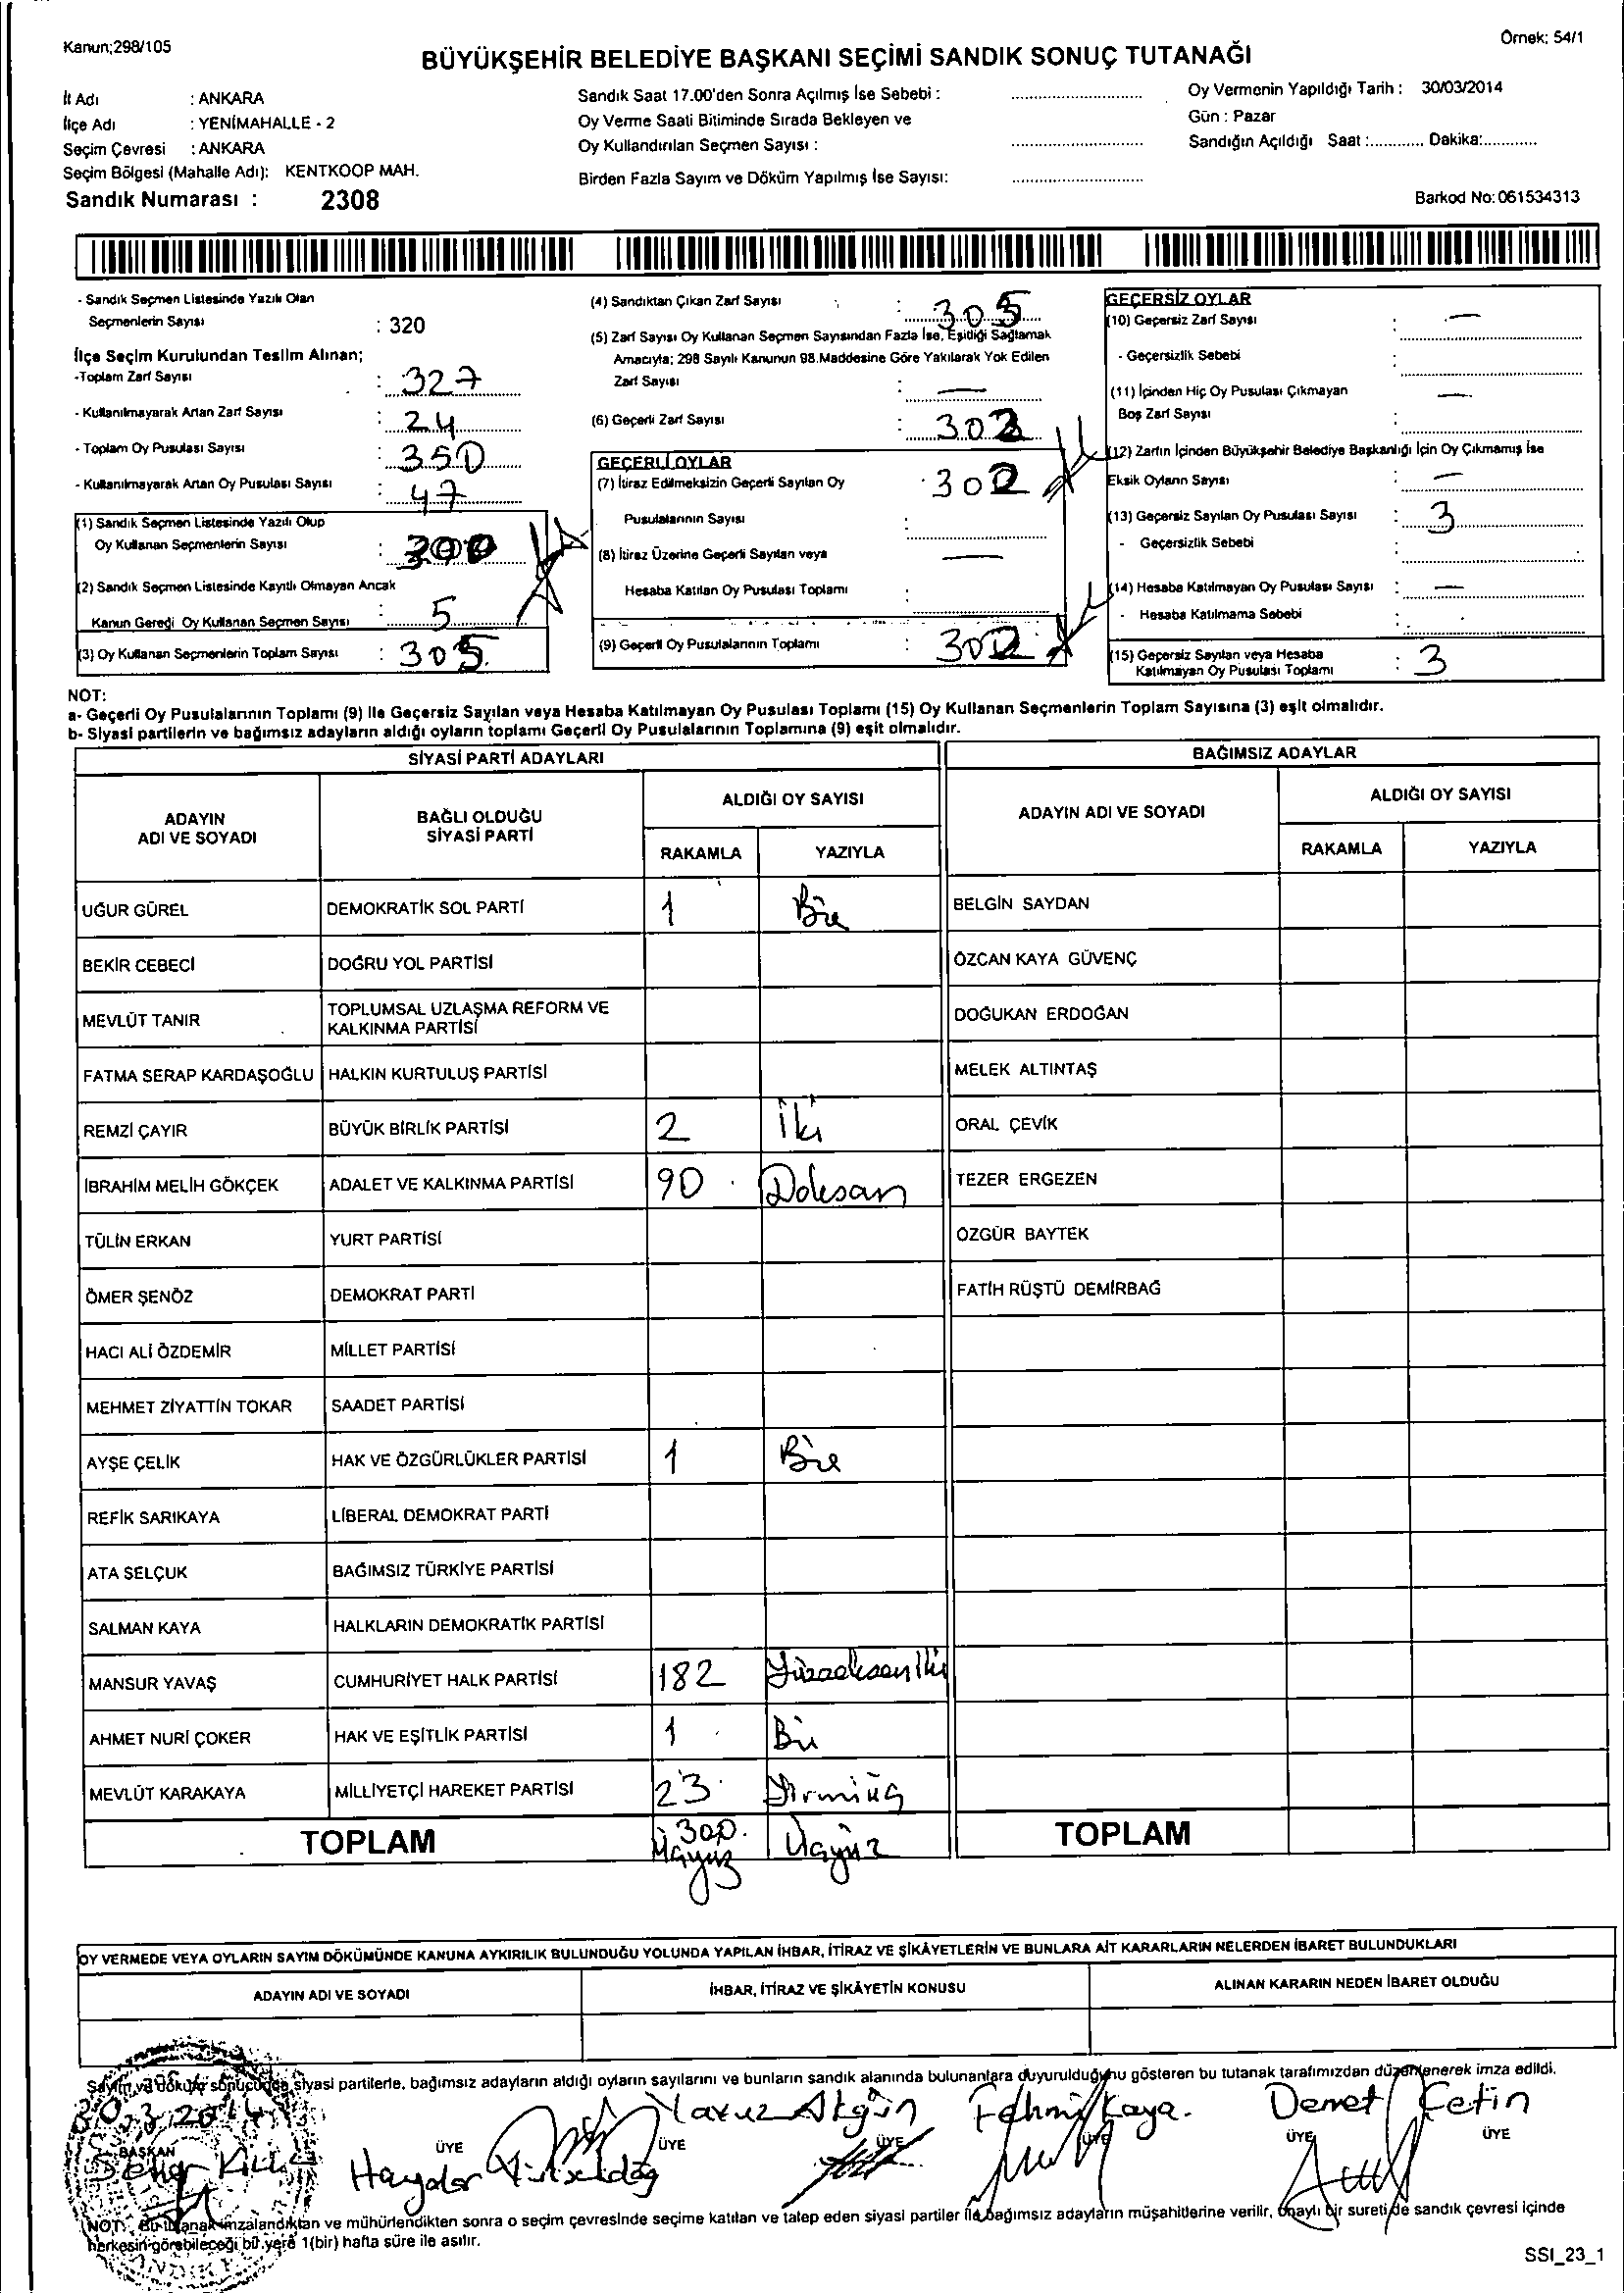 Kanun;298/105
Örnek: 54/1
BÜYÜKŞEHİR BELEDİYE BAŞKANI SEÇİMİ SANDIK SONUÇ TUTANAĞI
İl Adı : ANKARA
İlçe Adı : YENİMAHALLE - 2
Seçim Çevresi : ANKARA
Seçim Bölgesi (Mahalle Adı): KENTKOOP MAH.
Sandık Numarası : 2308
Sandık Saat 17.00'den Sonra Açılmış İse Sebebi :
Oy Verme Saati Bitiminde Sırada Bekleyen ve
Oy Kullandırılan Seçmen Sayısı :
Birden Fazla Sayım ve Döküm Yapılmış İse Sayısı:
Oy Vermenin Yapıldığı Tarih : 30/03/2014
Gün : Pazar
Sandığın Açıldığı Saat :............ Dakika:............
Barkod No: 061534313
- Sandık Seçmen Listesinde Yazılı Olan
Seçmenlerin Sayısı : 320
İlçe Seçim Kurulundan Teslim Alınan;
-Toplam Zarf Sayısı : 327
- Kullanılmayarak Artan Zarf Sayısı : 24
- Toplam Oy Pusulası Sayısı : 350
- Kullanılmayarak Artan Oy Pusulası Sayısı : 47
(1) Sandık Seçmen Listesinde Yazılı Olup
Oy Kullanan Seçmenlerin Sayısı : 300
(2) Sandık Seçmen Listesinde Kayıtlı Olmayan Ancak
Kanun Gereği Oy Kullanan Seçmen Sayısı : 5
(3) Oy Kullanan Seçmenlerin Toplam Sayısı : 305
(4) Sandıktan Çıkan Zarf Sayısı : 305
(5) Zarf Sayısı Oy Kullanan Seçmen Sayısından Fazla İse, Eşitliği Sağlamak
Amacıyla; 298 Sayılı Kanunun 98.Maddesine Göre Yakılarak Yok Edilen
Zarf Sayısı : —
(6) Geçerli Zarf Sayısı : 302
GEÇERLİ OYLAR
(7) İtiraz Edilmeksizin Geçerli Sayılan Oy 302
Pusulalarının Sayısı :
(8) İtiraz Üzerine Geçerli Sayılan veya —
Hesaba Katılan Oy Pusulası Toplamı :
(9) Geçerli Oy Pusulalarının Toplamı : 302
GEÇERSİZ OYLAR
(10) Geçersiz Zarf Sayısı : —
- Geçersizlik Sebebi :
(11) İçinden Hiç Oy Pusulası Çıkmayan —
Boş Zarf Sayısı :
(12) Zarfın İçinden Büyükşehir Belediye Başkanlığı İçin Oy Çıkmamış İse
Eksik Oyların Sayısı : —
(13) Geçersiz Sayılan Oy Pusulası Sayısı : 3
- Geçersizlik Sebebi :
(14) Hesaba Katılmayan Oy Pusulası Sayısı : —
- Hesaba Katılmama Sebebi :
(15) Geçersiz Sayılan veya Hesaba
Katılmayan Oy Pusulası Toplamı : 3
NOT:
a- Geçerli Oy Pusulalarının Toplamı (9) ile Geçersiz Sayılan veya Hesaba Katılmayan Oy Pusulası Toplamı (15) Oy Kullanan Seçmenlerin Toplam Sayısına (3) eşit olmalıdır.
b- Siyasi partilerin ve bağımsız adayların aldığı oyların toplamı Geçerli Oy Pusulalarının Toplamına (9) eşit olmalıdır.
SİYASİ PARTİ ADAYLARI
BAĞIMSIZ ADAYLAR
ADAYIN ADI VE SOYADI
BAĞLI OLDUĞU SİYASİ PARTİ
ALDIĞI OY SAYISI
RAKAMLA YAZIYLA
ADAYIN ADI VE SOYADI
ALDIĞI OY SAYISI
RAKAMLA YAZIYLA
UĞUR GÜREL DEMOKRATİK SOL PARTİ 1 Bir BELGİN SAYDAN
BEKİR CEBECİ DOĞRU YOL PARTİSİ ÖZCAN KAYA GÜVENÇ
MEVLÜT TANIR TOPLUMSAL UZLAŞMA REFORM VE KALKINMA PARTİSİ DOĞUKAN ERDOĞAN
FATMA SERAP KARDAŞOĞLU HALKIN KURTULUŞ PARTİSİ MELEK ALTINTAŞ
REMZİ ÇAYIR BÜYÜK BİRLİK PARTİSİ 2 İki ORAL ÇEVİK
İBRAHİM MELİH GÖKÇEK ADALET VE KALKINMA PARTİSİ 90 Doksan TEZER ERGEZEN
TÜLİN ERKAN YURT PARTİSİ ÖZGÜR BAYTEK
ÖMER ŞENÖZ DEMOKRAT PARTİ FATİH RÜŞTÜ DEMİRBAĞ
HACI ALİ ÖZDEMİR MİLLET PARTİSİ
MEHMET ZİYATTİN TOKAR SAADET PARTİSİ
AYŞE ÇELİK HAK VE ÖZGÜRLÜKLER PARTİSİ 1 Bir
REFİK SARIKAYA LİBERAL DEMOKRAT PARTİ
ATA SELÇUK BAĞIMSIZ TÜRKİYE PARTİSİ
SALMAN KAYA HALKLARIN DEMOKRATİK PARTİSİ
MANSUR YAVAŞ CUMHURİYET HALK PARTİSİ 182 Yüzseksen İki
AHMET NURİ ÇOKER HAK VE EŞİTLİK PARTİSİ 1 Bir
MEVLÜT KARAKAYA MİLLİYETÇİ HAREKET PARTİSİ 23 Yirmiüç
TOPLAM 300 Üçyüz Üçyüz TOPLAM
OY VERMEDE VEYA OYLARIN SAYIM DÖKÜMÜNDE KANUNA AYKIRILIK BULUNDUĞU YOLUNDA YAPILAN İHBAR, İTİRAZ VE ŞİKÂYETLERİN VE BUNLARA AİT KARARLARIN NELERDEN İBARET BULUNDUKLARI
ADAYIN ADI VE SOYADI İHBAR, İTİRAZ VE ŞİKÂYETİN KONUSU ALINAN KARARIN NEDEN İBARET OLDUĞU
Sayım ve döküm sonucunda siyasi partilerle, bağımsız adayların aldığı oyların sayılarını ve bunların sandık alanında bulunanlara duyurulduğunu gösteren bu tutanak tarafımızdan düzenlenerek imza edildi.
30.03.2014
Yavuz Akgün Fehmi Kaya. Demet Çetin
BAŞKAN ÜYE ÜYE ÜYE ÜYE ÜYE ÜYE
Haydar
NOT: Bu tutanak imzalandıktan ve mühürlendikten sonra o seçim çevresinde seçime katılan ve talep eden siyasi partiler ile bağımsız adayların müşahitlerine verilir, onaylı bir sureti de sandık çevresi içinde
herkesin görebileceği bir yere 1(bir) hafta süre ile asılır.
SSI_23_1